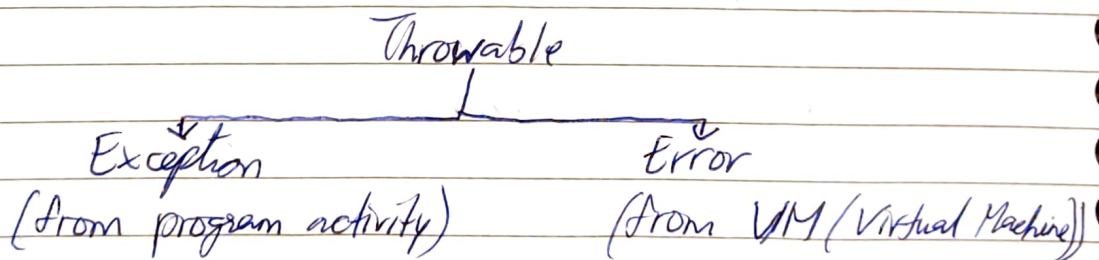 Throwable
Exception Error
(from program activity) (from VM (Virtual Machine))